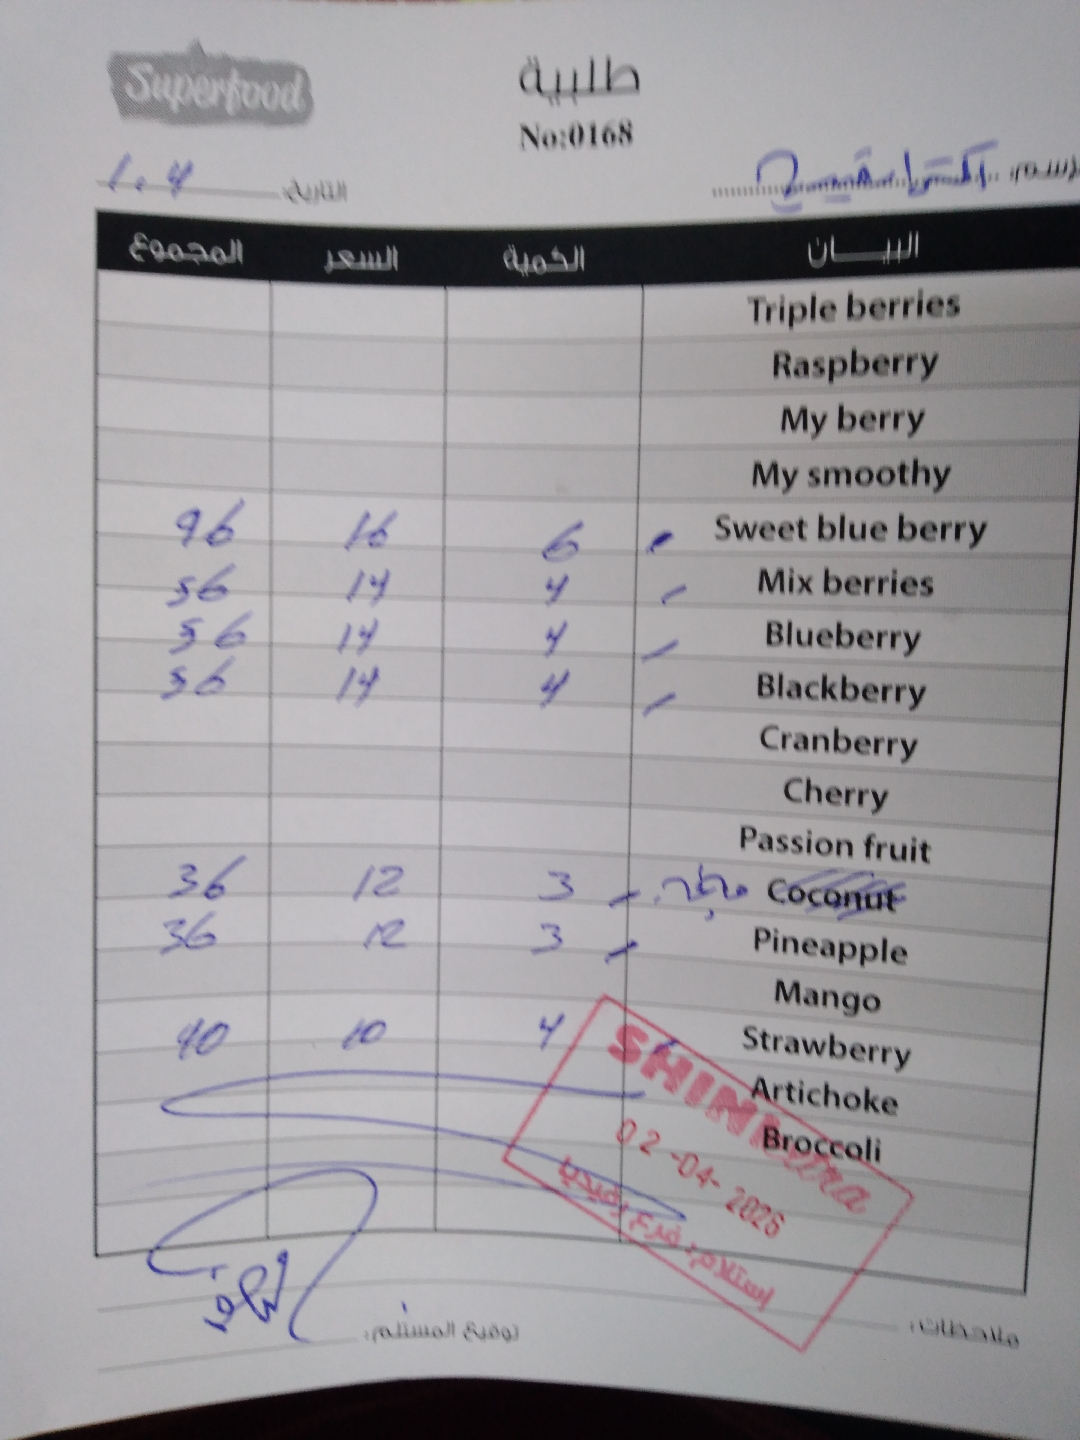 Superfood
طلبية
No:0168
التاريخ: 1.4
البيان الكمية السعر المجموع
Triple berries
Raspberry
My berry
My smoothy
Sweet blue berry 6 16 96
Mix berries 4 14 56
Blueberry 4 14 56
Blackberry 4 14 56
Cranberry
Cherry
Passion fruit
Coconut 3 12 36
Pineapple 3 12 36
Mango
Strawberry 4 10 40
Artichoke
Broccoli
SHINI extra
02-04-2026
استلام: فرع
ملاحظات:
توقيع المستلم: